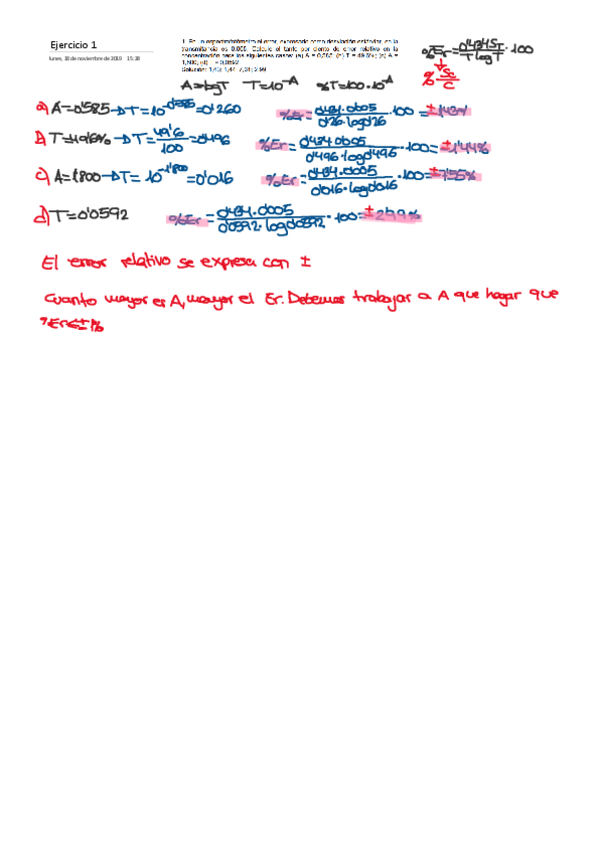 Ejercicio 1
lunes, 18 de noviembre de 2019 15:18
1. En un espectrofotómetro el error, expresado como desviación estándar, en la
transmitancia es 0,005. Calcule el tanto por ciento de error relativo en la
concentración para los siguientes casos: (a) A = 0,585; (b) T = 49,6%; (c) A =
1,800; (d) = 0,0592
Solución: 1,43; 1,44; 7,28; 2,99
%Er = 0'434 ST / T log T · 100
% Sc / C
A = -log T T = 10^-A %T = 100·10^-A
a) A = 0'585 → T = 10^-0'585 = 0'260 %Er = 0'434·0'005 / 0'26·log0'26 · 100 = ±1'43%
b) T = 49'6% → T = 49'6 / 100 = 0'496 %Er = 0'434·0'005 / 0'496·log0'496 · 100 = ±1'44%
c) A = 1'800 → T = 10^-1'800 = 0'016 %Er = 0'434·0'005 / 0'016·log0'016 · 100 = ±7'55%
d) T = 0'0592 %Er = 0'434·0'005 / 0'0592·log0'0592 · 100 = ±2'99%
El error relativo se expresa con ±
Cuanto mayor es A, mayor el Er. Debemos trabajar a A que hagar que
%Er<±1%